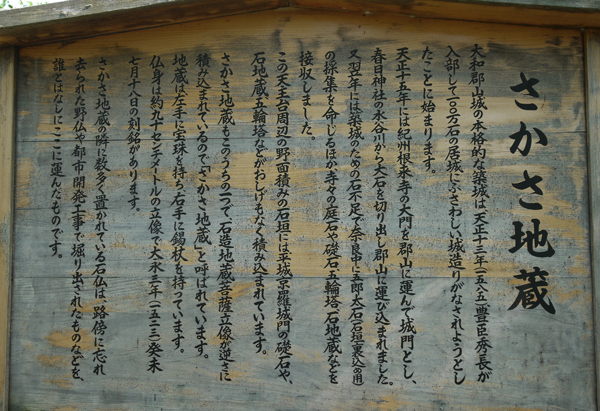 さかさ地蔵
大和郡山城の本格的な築城は、天正十三年(一五八五)豊臣秀長が
入部して一〇〇万石の居城にふさわしい城造りがなされようとし
たことに始まります。
天正十五年には紀州根来寺の大門を郡山に運んで城門とし、
春日神社の水谷川から大石を切り出し郡山に運び込まれました。
又翌年には築城のための石不足で奈良中に五郎太石(石垣裏込め用)
の採集を命じるほか寺々の庭石や礎石、五輪塔、石地蔵などを
接収しました。
この天主台周辺の野面積みの石垣には平城京羅城門の礎石や、
石地蔵、五輪塔などがおしげもなく積み込まれています。
さかさ地蔵もこのうちの一つで、石造地蔵菩薩立像が逆さに
積み込まれているので「さかさ地蔵」と呼ばれています。
地蔵は左手に宝珠を持ち、右手に錫杖を持っています。
仏身は約九十センチメートルの立像で大永三年(一五二三)癸未
七月十八日の刻銘があります。
さかさ地蔵の隣に数多く置かれている石仏は、路傍に忘れ
去られた野仏や都市開発工事で掘り出されたものなどを、
誰とはなしにここに運んだものです。